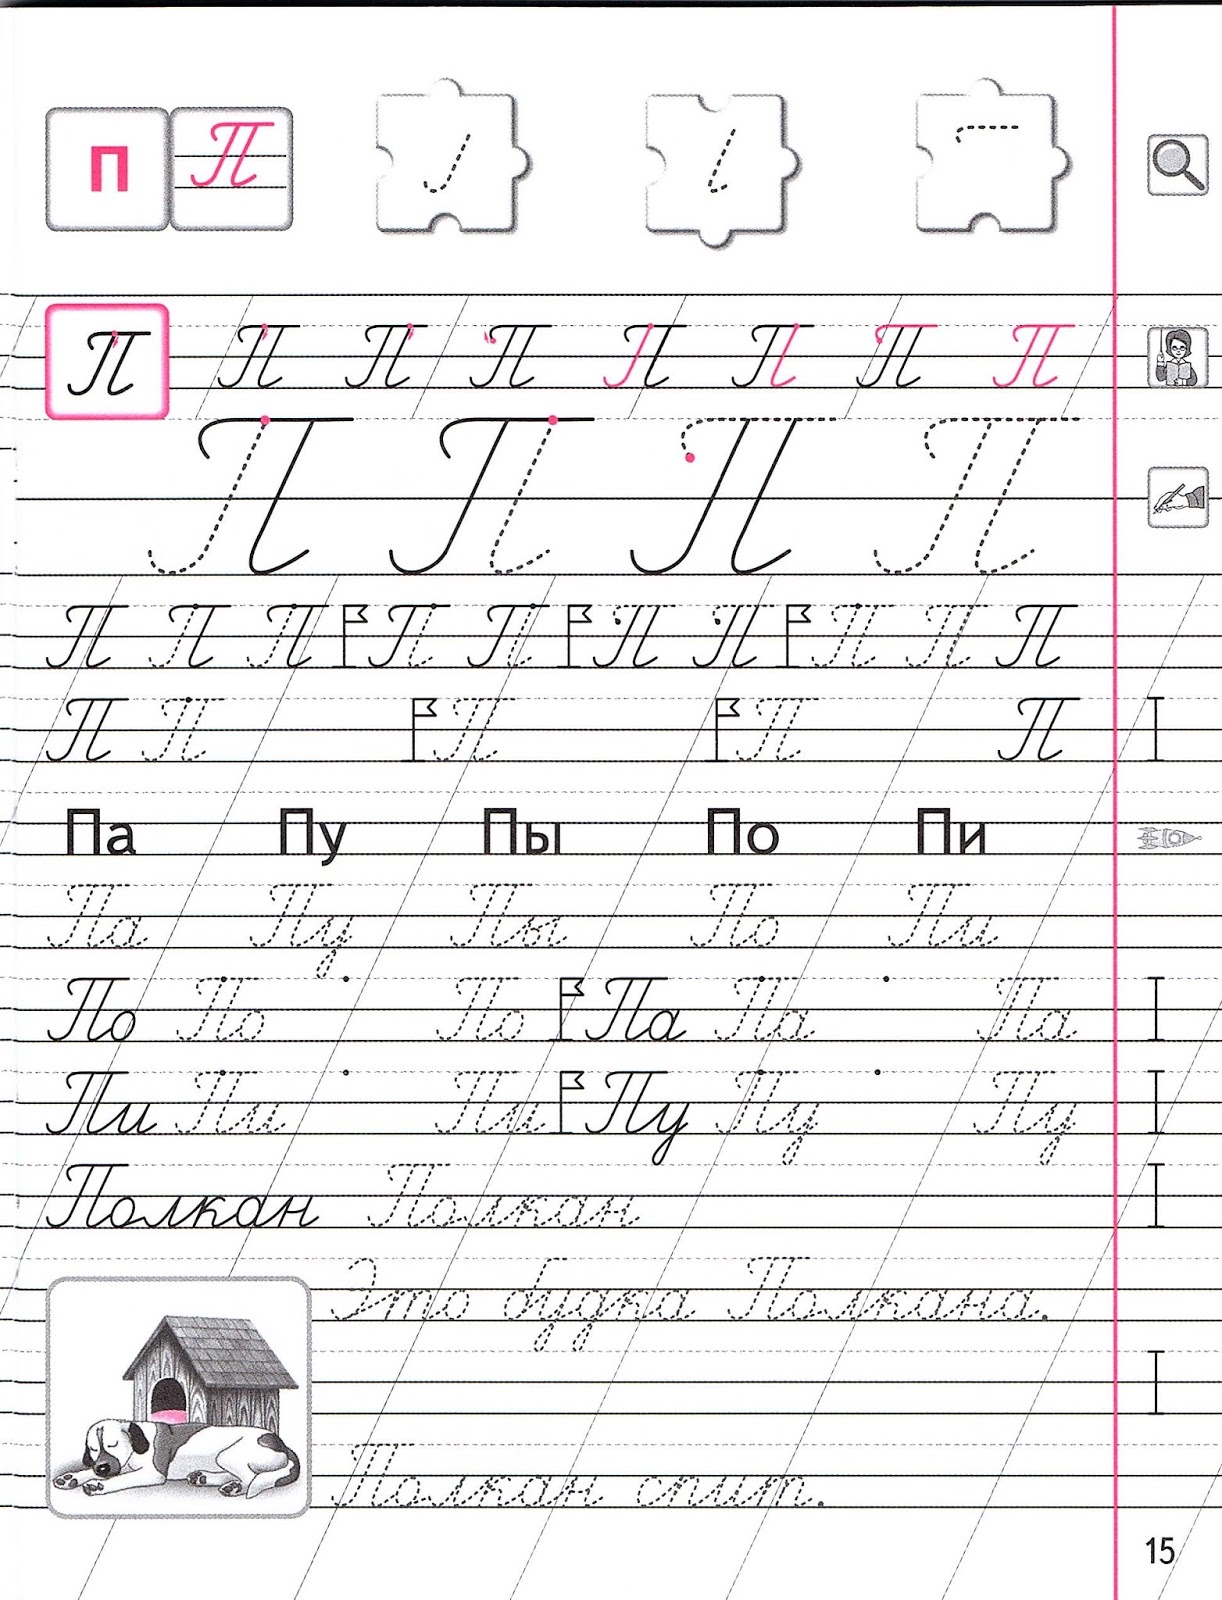 П П
П П П П П П П П
П П П П
П П П П П П П П П П
П П П П П
Па Пу Пы По Пи
Па Пу Пы По Пи
По По По Па Па Па
Пи Пи Пи Пу Пу Пу
Полкан Полкан
Это будка Полкана.
Полкан спит.
15